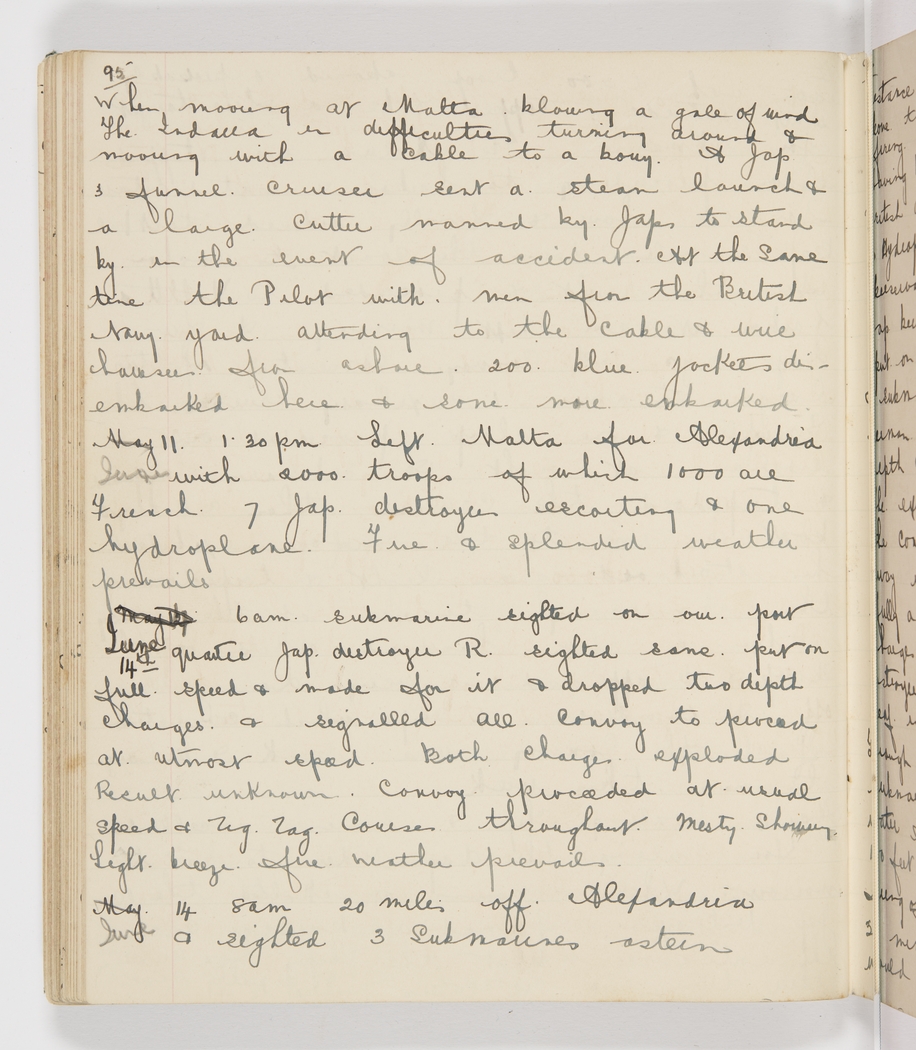 95
When mooring at Malta. blowing a gale of wind
The Indarra in difficulties turning around &
mooring with a cable to a bouy. A Jap
3 funnel. Cruiser sent a. steam launch &
a large. Cutter manned by. Japs to stand
by. in the event of accident. At the same
time the Pilot with. men from the British
Navy. yard. attending to the cable & wire
hawsers. from ashore. 200. blue. jackets dis-
embarked here. & some. more. embarked.
May 11. 1.30pm Left. Malta for Alexandria
June with 2000. troops of which 1000 are
French. 7 Jap. destroyers escorting & one
hydroplane. Fine. & splendid weather
prevails
May 13 6am. submarine sighted on our. port
June 14th quarter Jap. destroyer R. sighted same. put on
full. speed & made for it & dropped two depth
charges. & signalled all. Convoy to proceed
at. utmost speed. Both charges. exploded
Result unknown. Convoy. proceeded at. usual
speed & Zig. Zag. Courses throughout. Misty. Showery.
Light. breeze. fine. weather prevails.
May. 14 8am 20 miles off. Alexandria
June & sighted 3 Submarines astern